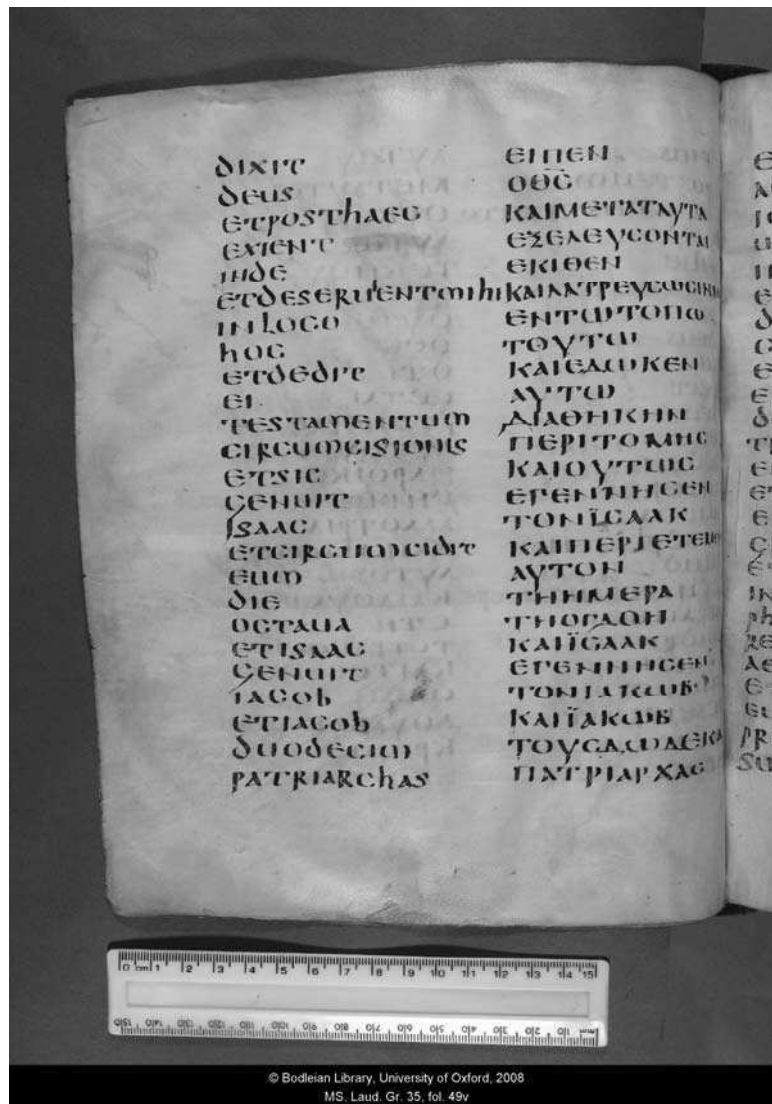 DIXIT
DEUS
ETPOSTHAEC
EXIENT
INDE
ETDESERUENTMIHI
INLOCO
HOC
ETDEDIT
EI
TESTAMENTUM
CIRCUMCISIONIS
ETSIC
GENUIT
ISAAC
ETCIRCUMCIDIT
EUM
DIE
OCTAUA
ETISAAC
GENUIT
IACOB
ETIACOB
DUODECIM
PATRIARCHAS
ΕΙΠΕΝ
ΟΘΣ
ΚΑΙΜΕΤΑΤΑΥΤΑ
ΕΞΕΛΕΥΣΟΝΤΑΙ
ΕΚΙΘΕΝ
ΚΑΙΛΑΤΡΕΥΣΩΣΙΝΜΟΙ
ΕΝΤΩΤΟΠΩ
ΤΟΥΤΩ
ΚΑΙΕΔΩΚΕΝ
ΑΥΤΩ
ΔΙΑΘΗΚΗΝ
ΠΕΡΙΤΟΜΗΣ
ΚΑΙΟΥΤΩΣ
ΕΓΕΝΝΗΣΕΝ
ΤΟΝΪΣΑΑΚ
ΚΑΙΠΕΡΙΕΤΕΜΕΝ
ΑΥΤΟΝ
ΤΗΗΜΕΡΑ
ΤΗΟΓΔΟΗ
ΚΑΙΪΣΑΑΚ
ΕΓΕΝΝΗΣΕΝ
ΤΟΝΙΑΚΩΒ
ΚΑΙΪΑΚΩΒ
ΤΟΥΣΔΩΔΕΚΑ
ΠΑΤΡΙΑΡΧΑΣ
0 cm 1 2 3 4 5 6 7 8 9 10 11 12 13 14 15
mm 10 20 30 40 50 60 70 80 90 100 110 120 130 140 150
© Bodleian Library, University of Oxford, 2008
MS. Laud. Gr. 35, fol. 49v